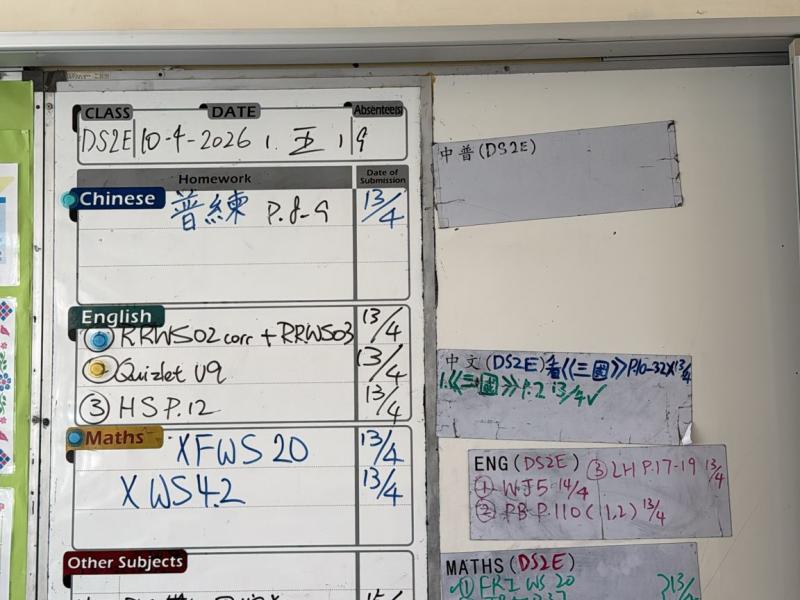 CLASS DATE Absentee(s)
DS2E 10-4-2026 1. 五 1 9
Homework Date of Submission
Chinese 普練 P.8-9 13/4
English
① RRWS02 corr + RRWS03 13/4
② Quizlet U9 13/4
③ HS P.12 13/4
Maths XFWS 20 13/4
X WS4.2 13/4
Other Subjects
中普(DS2E)
中文(DS2E) 看《三國》P.16-32X13/4
1.《三國》P.2 13/4✓
ENG(DS2E) ③ LH P.17-19 13/4
① WJ5 14/4
② PB P.110(1,2) 13/4
MATHS(DS2E)